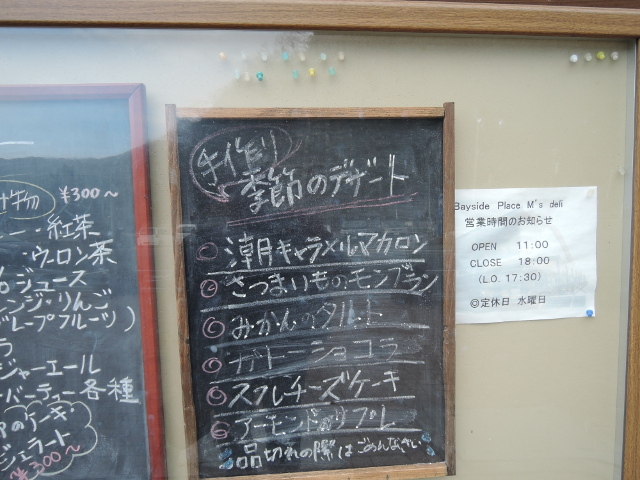 み物 ¥300～
紅茶
ウーロン茶
ジュース
ンジ・りんご
グレープフルーツ)
ラ
ジャーエール
バーティー各種
ケーキ・
ジェラート
¥300～
手作り
季節のデザート
潮月キャラメルマカロン
さつまいものモンブラン
みかんのタルト
ガトーショコラ
スフレチーズケーキ
アーモンドのサブレ
品切れの際はごめんなさい
Bayside Place M's deli
営業時間のお知らせ
OPEN 11:00
CLOSE 18:00
(L.O. 17:30)
◎定休日 水曜日